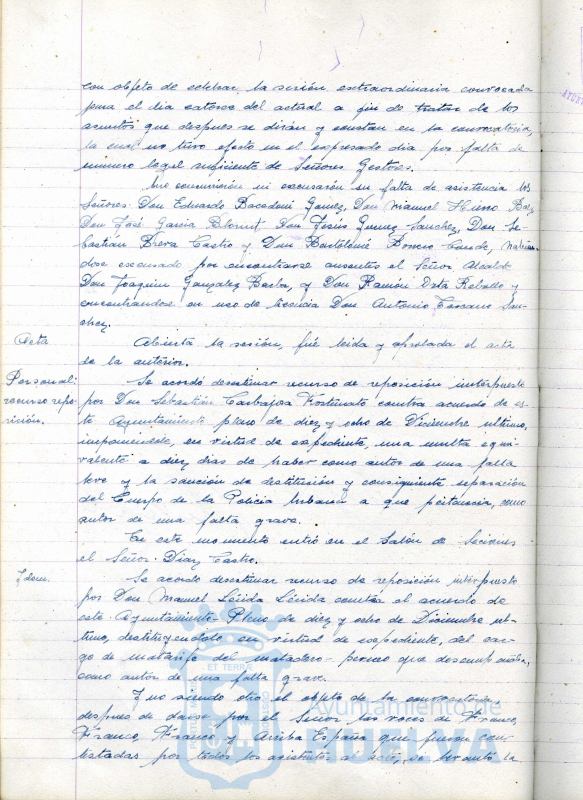 con objeto de celebrar la sesión extraordinaria convocada
para el dia catorce del actual a fin de tratar de los
asuntos que despues se dirán y constan en la convocatoria,
la cual no tuvo efecto en el expresado dia por falta de
número legal suficiente de Señores Gestores.
No concurrieron ni excusaron su falta de asistencia los
Señores: Don Eduardo Gomez, Don Manuel
Don José Garcia Don Jesús Gomez Sanchez, Don Se-
bastián Brera Castro y Don Bartolomé Romero habien-
dose excusado por encontrarse ausentes el Señor Alcalde
Don Joaquin Gonzalez Barba, y Don Ramón Rebollo y
encontrandose en uso de licencia Don Antonio San-
chez.
Acta
Abierta la sesión, fué leida y aprobada el acta
de la anterior.
Personal:
recurso repo-
sición.
Se acordó desestimar recurso de reposición interpuesto
por Don Sebastián Carbajosa Fortunato contra acuerdo de es-
te Ayuntamiento pleno de diez y ocho de Diciembre ultimo,
imponiendole, en virtud de expediente, una multa equi-
valente a diez dias de haber como autor de una falta
leve y la sanción de destitución y consiguiente separación
del Cuerpo de la Policia Urbana a que pertenecia, como
autor de una falta grave.
En este momento entró en el Salón de Sesiones
el Señor Diaz Castro.
Idem.
Se acordó desestimar recurso de reposición interpuesto
por Don Manuel Lérida Lérida contra el acuerdo de
este Ayuntamiento-Pleno de diez y ocho de Diciembre ul-
timo, destituyendole en virtud de expediente, del car-
go de matarife del matadero que desempeñaba,
como autor de una falta grave.
Y no siendo otro el objeto de la convocatoria
despues de darse por el Señor las voces de Franco,
Franco, Franco y Arriba España que fueron con-
testadas por todos los asistentes al acto, se levantó la
ET TERRA
Ayuntamiento de
HUELVA